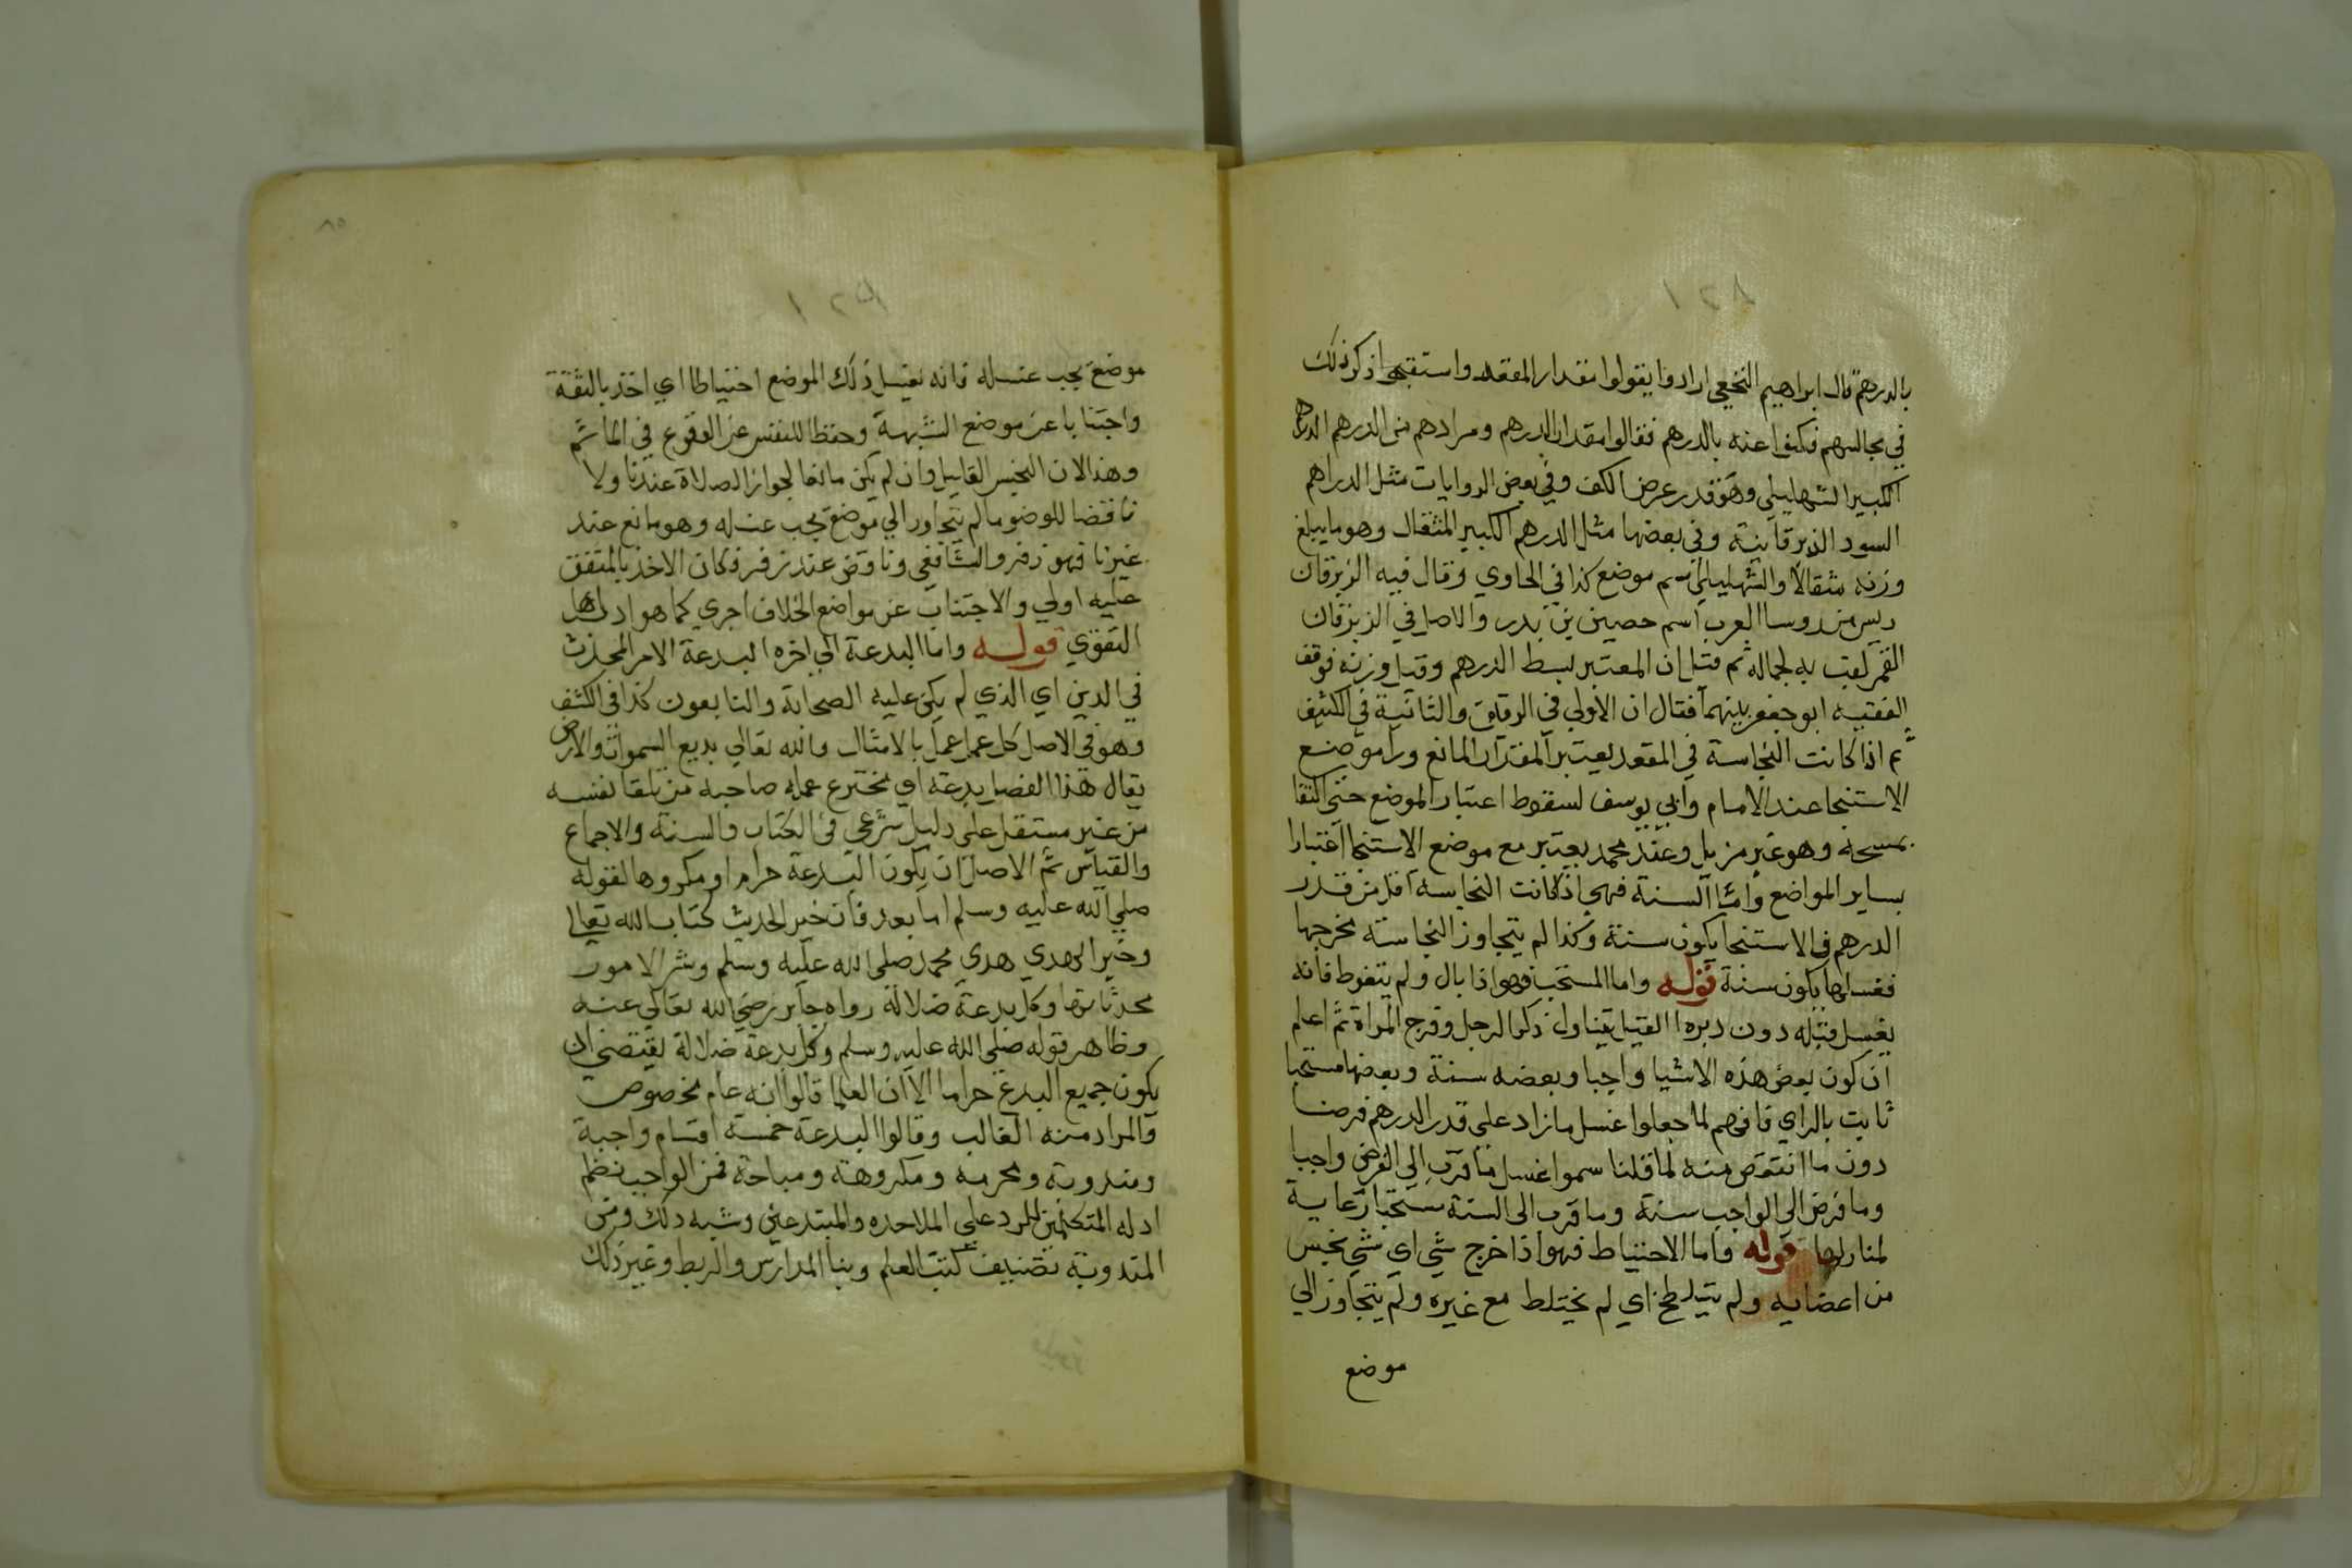 بالدرهم قال ابراهيم النخعي ارادوا يقولوا مقدار المقعد واستقبحوا ذكر ذلك
في مجالسهم فكنوا عنه بالدرهم فقالوا مقدار الدرهم ومرادهم من الدرهم الدرهم
الكبير الشهليلي وهو قدر عرض الكف وفي بعض الروايات مثل الدراهم
السود الزبرقانية وفي بعضها مثل الدرهم الكبير المثقال وهو ما يبلغ
وزنه مثقالا والشهليلي اسم موضع كذا في الحاوي وقال فيه الزبرقان
ريس من روسا العرب اسم حصين بن بدر والاصل في الزبرقان
القمر لقب به لجماله ثم قيل ان المعتبر بسط الدرهم وقيل وزنه فوقف
الفقيه ابو جعفر بينهما فقال ان الاولي في الرقيق والثانية في الكثيف
ثم اذا كانت النجاسة في المقعد يعتبر المقدار المانع ورا موضع
الاستنجا عند الامام وابي يوسف لسقوط اعتبار الموضع حتى اكتفا
بمسحه وهو غير مزيل وعند محمد يعتبر مع موضع الاستنجا اعتبارا
بساير المواضع واما السنة فهي اذا كانت النجاسه اقل من قدر
الدرهم في الاستنجا يكون سنة وكذا لم يتجاوز النجاسته مخرجها
فغسلها يكون سنة قوله واما المستحب فهو اذا بال ولم يتغوط فانه
يغسل قبله دون دبره القبل يتناول ذكر الرجل وفرج المراة ثم اعلم
ان كون بعض هذه الاشيا واجبا وبعضه سنة وبعضها مستحبا
ثابت بالراي فافهم لما جعلوا غسل ما زاد على قدر الدرهم فرضا
دون ما انتقص منه لما قلنا سموا غسل ما قرب الي الفرض واجبا
وما فرض الى الواجب سنة وما قرب الى السنة مستحبا رعاية
لمنازلها قوله واما الاحتياط فهو اذا خرج شي اي شي نجس
من اعضايه ولم يتلطخ اي لم يختلط مع غيره ولم يتجاوز الي
موضع
موضع يجب غسله فانه يغسل ذلك الموضع احتياطا اي اخذ بالثقة
واجتنابا عن موضع الشبهة وحفظا للنفس عن الوقوع في الماثم
وهذا لان النجس القليل وان لم يكن مانعا لجواز الصلاة عندنا ولا
ناقضا للوضو ما لم يتجاوز الي موضع يجب غسله وهو مانع عند
غيرنا فهو زفر والشافعي وناقض عند زفر فكان الاخذ بالمتفق
عليه اولي والاجتناب عن مواضع الخلاف احري كما هو اداب اهل
التقوي قوله واما البدعة الى اخره البدعة الامر المحدث
في الدين اي الذي لم يكن عليه الصحابة والتابعون كذا في الكشف
وهو في الاصل كل عمل عمل بالامثال والله تعالي بديع السموات والارض
يقال هذا الفصل بدعة اي مخترع عمله صاحبه من تلقا نفسه
من غير مستقل على دليل شرعي في الكتاب والسنة والاجماع
والقياس ثم الاصل ان يكون البدعة حراما او مكروها لقوله
صلى الله عليه وسلم اما بعد فان خير الحديث كتاب الله تعالى
وخير الهدي هدي محمد صلى الله عليه وسلم وشر الامور
محدثاتها وكل بدعة ضلالة رواه جابر رضي الله تعالى عنه
وظاهر قوله صلى الله عليه وسلم وكل بدعة ضلالة يقتضي ان
يكون جميع البدع حراما الا ان العلما قالوا انه عام مخصوص
والمراد منه الغالب وقالوا البدعة خمسة اقسام واجبة
ومندوبة ومحرمه ومكروهة ومباحة فمن الواجب نظم
ادله المتكلمين للرد على الملاحده والمبتدعين وشبه ذلك ومن
المندوبة تصنيف كتب العلم وبنا المدارس والربط وغير ذلك